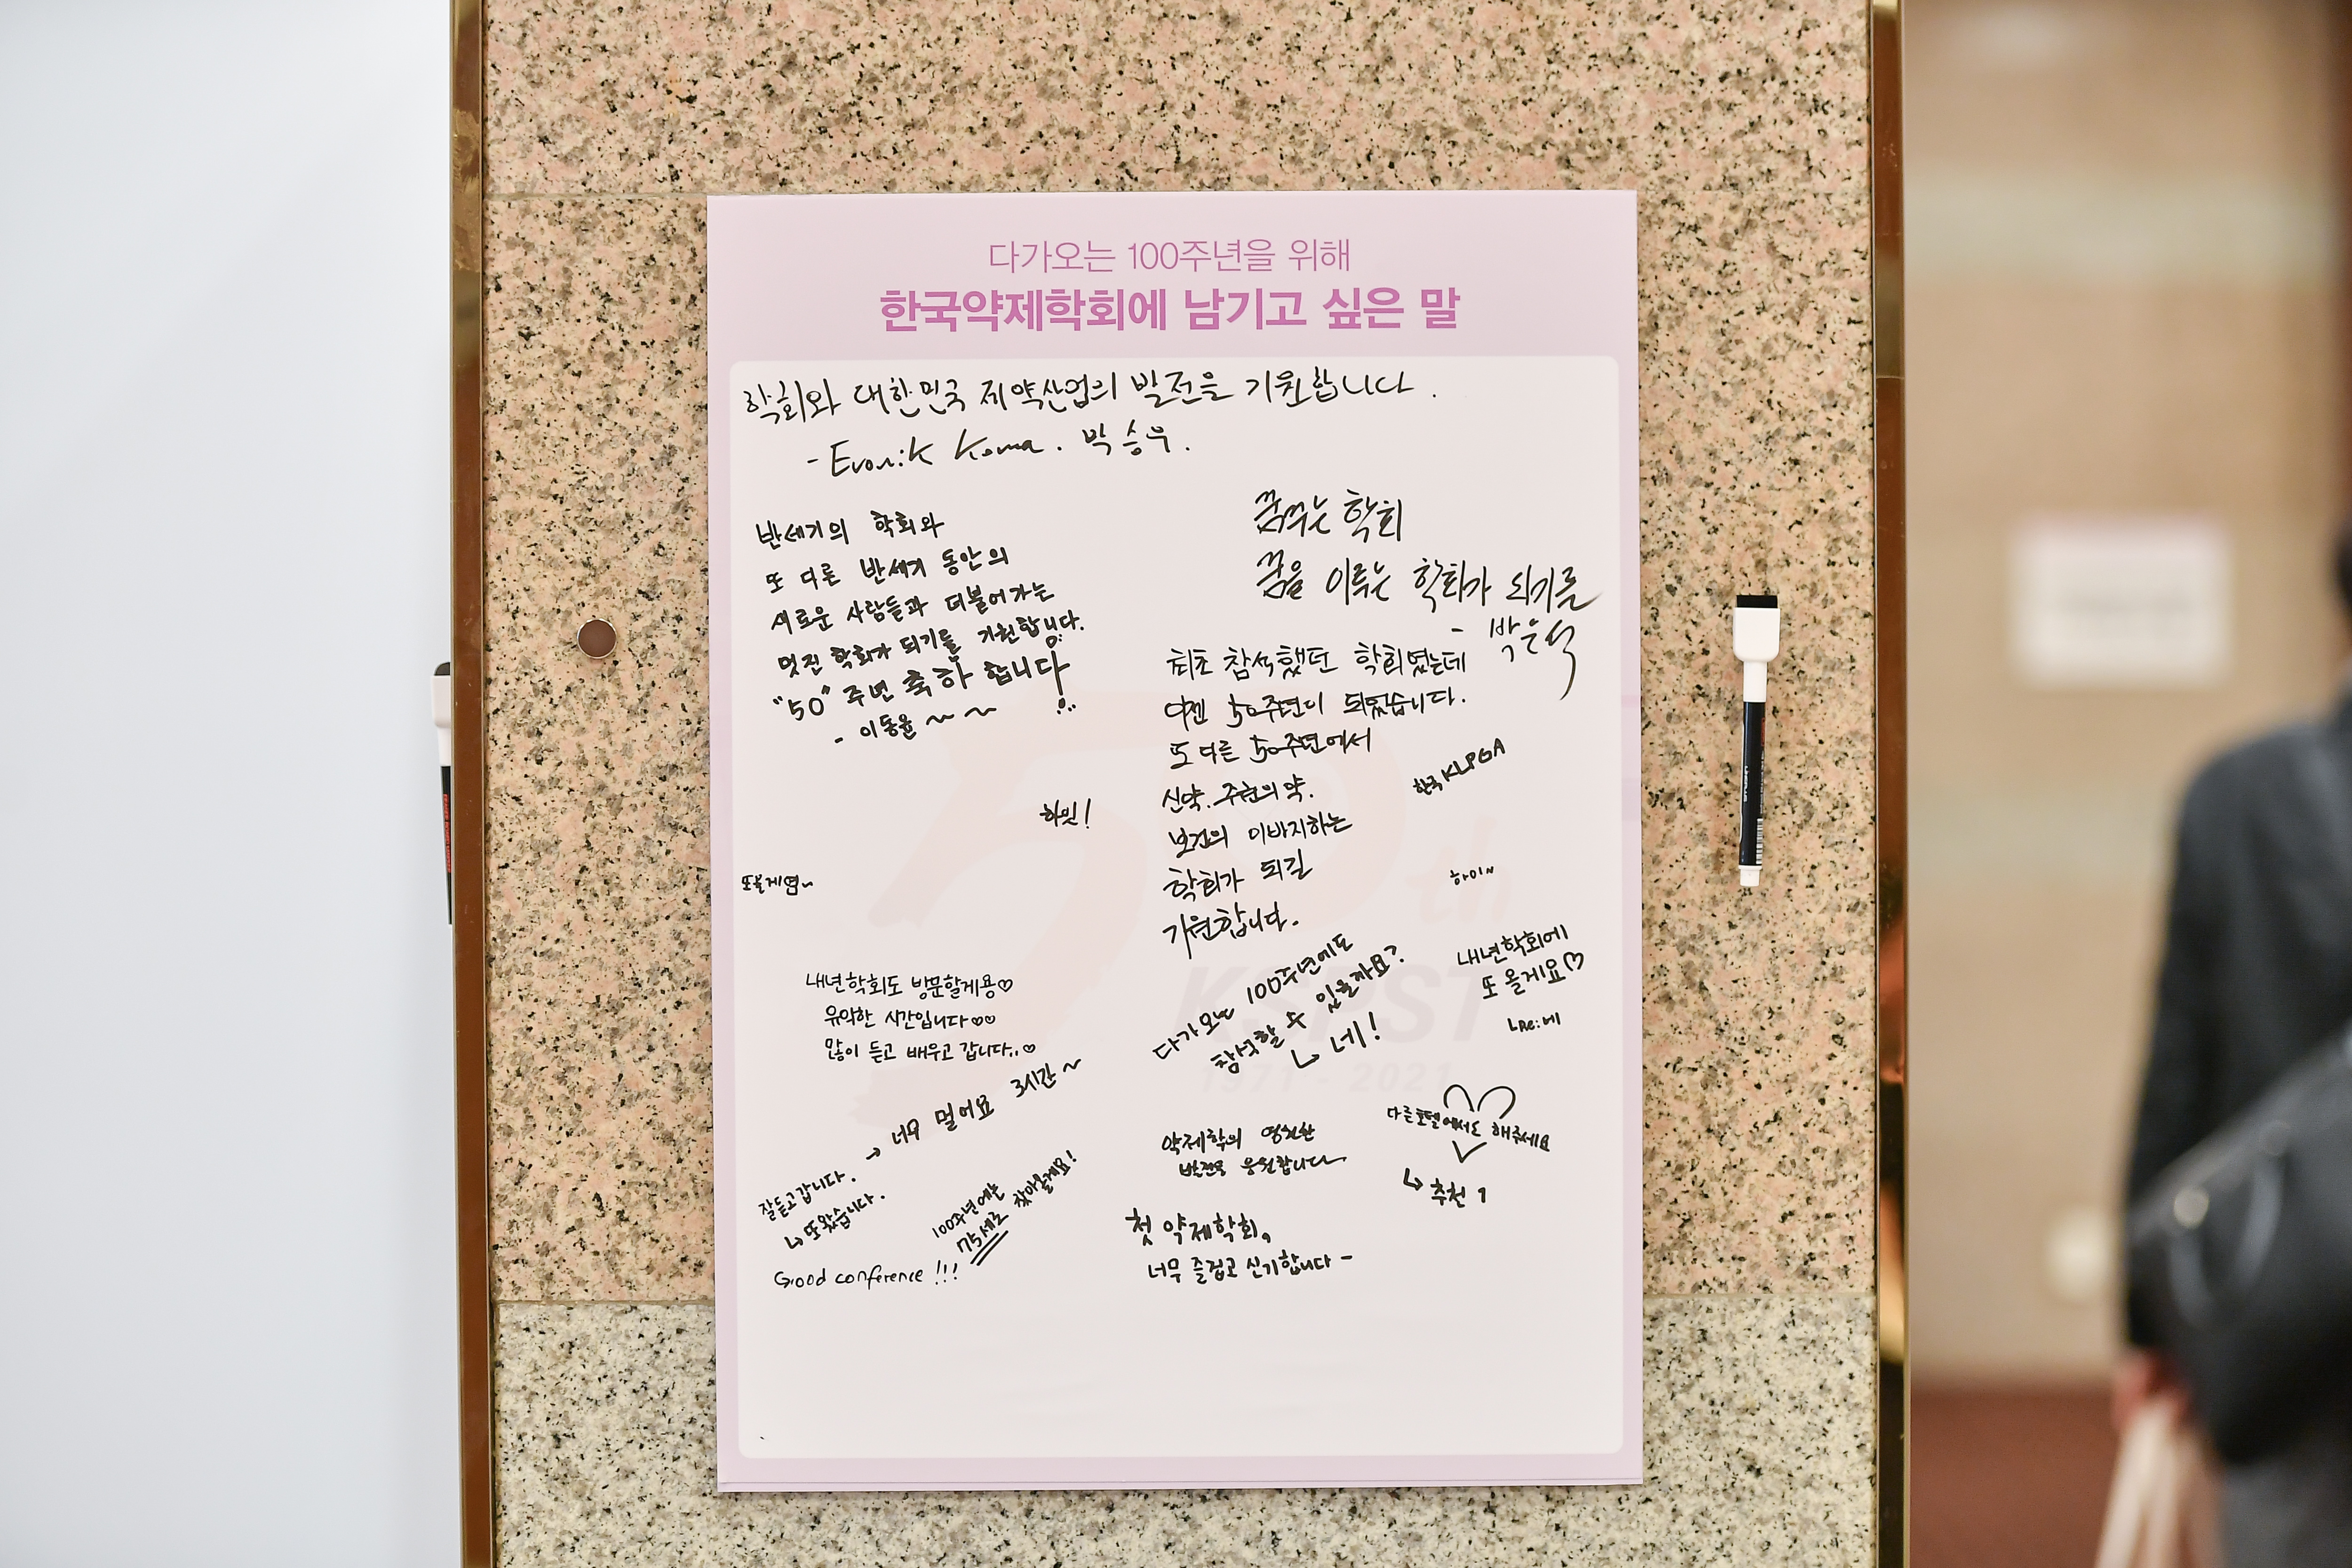 다가오는 100주년을 위해
한국약제학회에 남기고 싶은 말
학회와 대한민국 제약산업의 발전을 기원합니다.
- Evonik Korea. 박승우.
반세기의 학회와
또 다른 반세기 동안의
새로운 사람들과 더불어가는
멋진 학회가 되기를 기원합니다.
"50"주년 축하합니다!
- 이동윤 ~ ~
꿈꾸는 학회
꿈을 이루는 학회가 되기를
- 박은석
최초 참석했던 학회였는데
이젠 50주년이 되었습니다.
또 다른 50주년에서
신약. 주현의 약.
보건의 이바지하는
학회가 되길
기원합니다.
한국 KLPGA
하밀!
또올게염~
하이~
내년학회에
또 올게요♡
내년학회도 방문할게용♡
유익한 시간입니다♡♡
많이 듣고 배우고 갑니다..♡
다가오는 100주년에도
참석할 수 있을까요?
↳ 네!
50th
KSPST
1971 - 2021
→ 너무 멀어요 3시간~
잘듣고갑니다.
↳ 또왔습니다.
100주년에는
75세로 찾아올게요!
Good conference !!!
약제학의 영원한
발전을 응원합니다
다른호텔에서도 해주세요
↳ 추천 1
첫 약제학회,
너무 즐겁고 신기합니다-